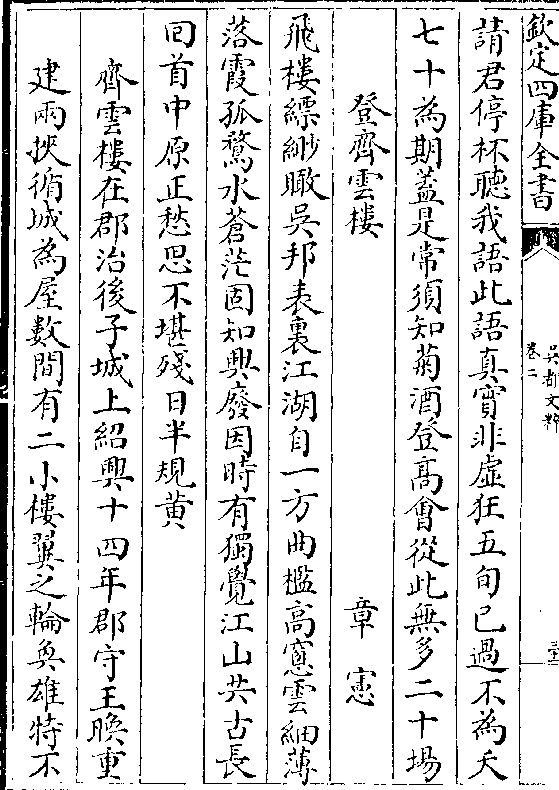 欽定四庫全書
吳都文粹
卷二
請君停杯聽我語此語真實非虛狂五旬已過不為夭
七十為期蓋是常須知菊酒登髙會從此無多二十場
登齊雲樓
章憲
飛樓縹緲瞰吳邦表裏江湖自一方曲檻高窻雲細薄
落霞孤鶩水蒼茫固知興廢因時有獨覺江山共古長
回首中原正愁思不堪殘日半規黄
齊雲樓在郡治後子城上紹興十四年郡守王㬇重
建兩挾循城為屋數間有二小樓翼之輪奐雄特不